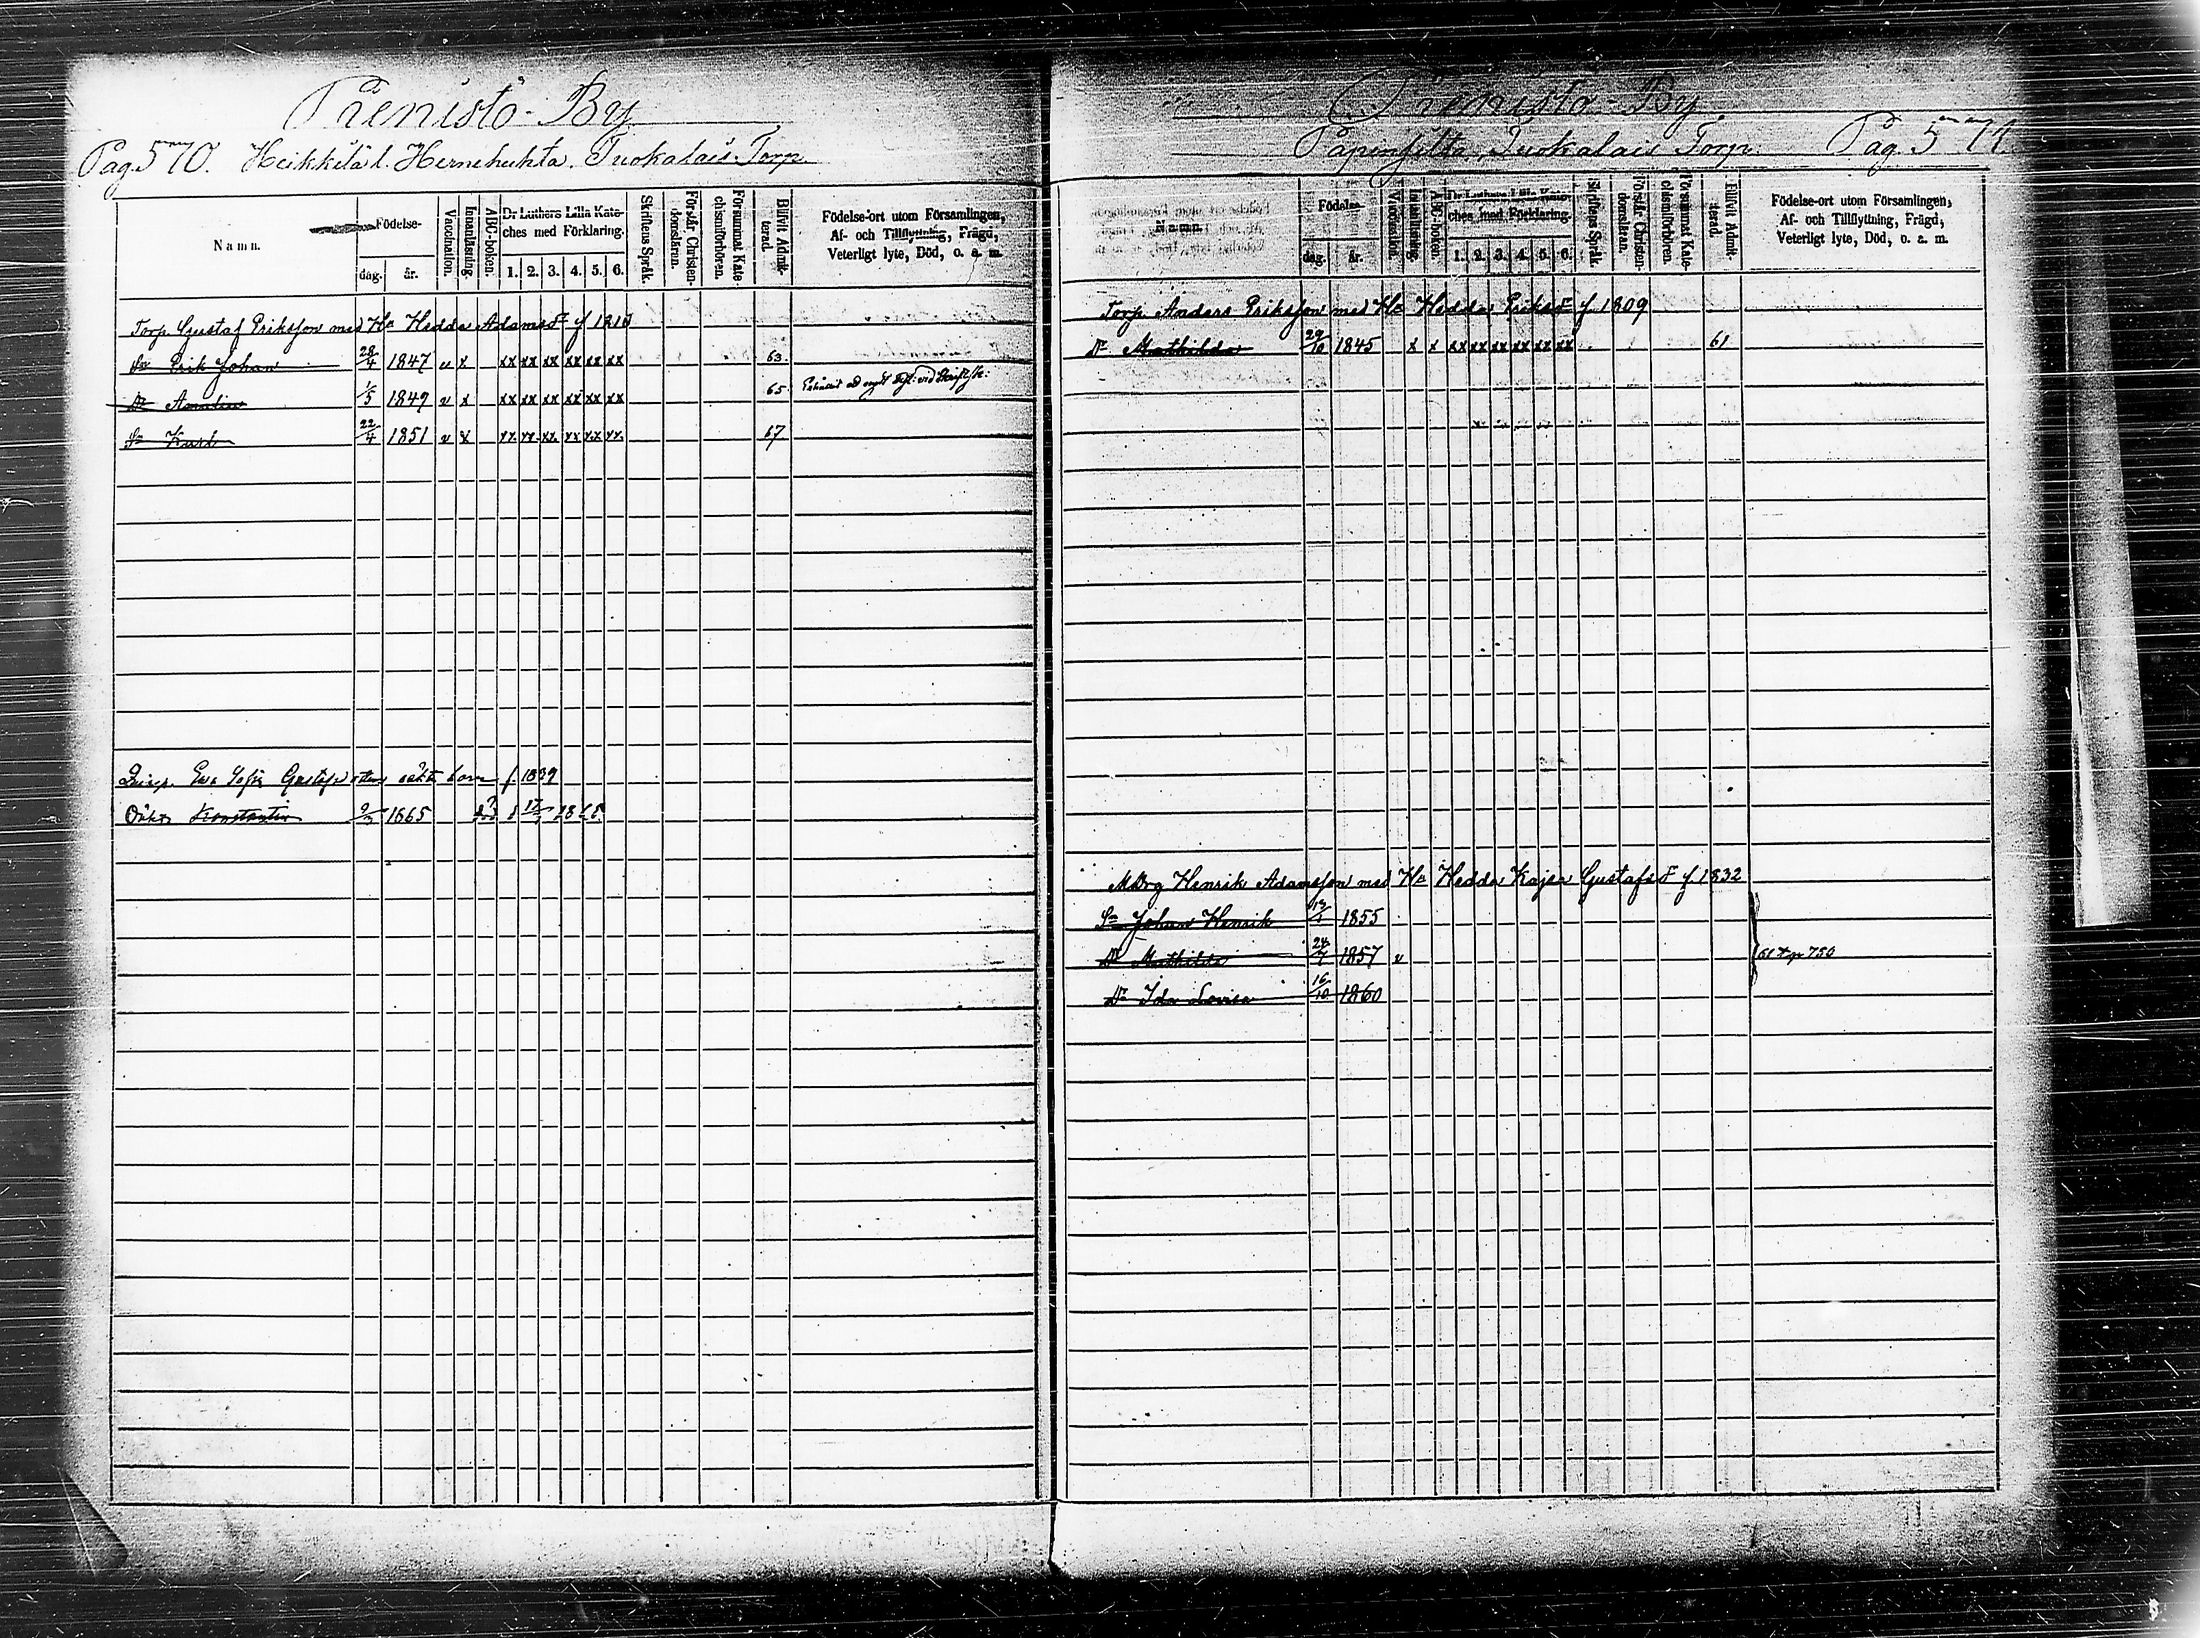 Prenistö-By
Pag. 570. Heikkilä l. Hernehuhta. Tuokalais Torp.
Namn. Födelse- dag. år. Vaccination. Innanläsning. ABC-boken. Dr Luthers Lilla Kateches med Förklaring. 1. 2. 3. 4. 5. 6. Skriftens Språk. Förstår Christendomsläran. Försummat Katechismiförhören. Blifvit Admitterad. Födelse-ort utom Församlingen, Af- och Tillflyttning, Frägd, Veterligt lyte, Död, o. a. m.
Torp. Gustaf Eriksson med Ha Hedda Adamsdr f 1210
Sn Erik Johan 28/4 1847 v x xx xx xx xx xx xx 63.
Dr Amalia 1/5 1849 v x xx xx xx xx xx xx 65
Sn Karl 22/4 1851 v x xx xx xx xx xx xx 67
Inhys. Eva Sofia Gustafsdotters oäkta barn f. 1839
Oäkta Konstantin 9/3 1865 död d 17/7 1865.
Prenistö-By
Papinsilta, Tuokalais Torp. Pag. 571.
Namn. Födelse- dag. år. Vaccination. Innanläsning. ABC-boken. Dr Luthers Lilla Kateches med Förklaring. 1. 2. 3. 4. 5. 6. Skriftens Språk. Förstår Christendomsläran. Försummat Katechismiförhören. Blifvit Admitterad. Födelse-ort utom Församlingen, Af- och Tillflyttning, Frägd, Veterligt lyte, Död, o. a. m.
Torp Anders Eriksson med Ha Hedda Eriksdr f. 1809
Dr Mathilda 29/10 1845 x x xx xx xx xx xx xx 61
Henrik Adamsson med Ha Hedda Kajsa Gustafsdr f 1832
Sn Johan Henrik 13/1 1855
Dr Mathilda 24/7 1857 v 61 t. p 750
Dr Ida Lovisa 16/10 1860